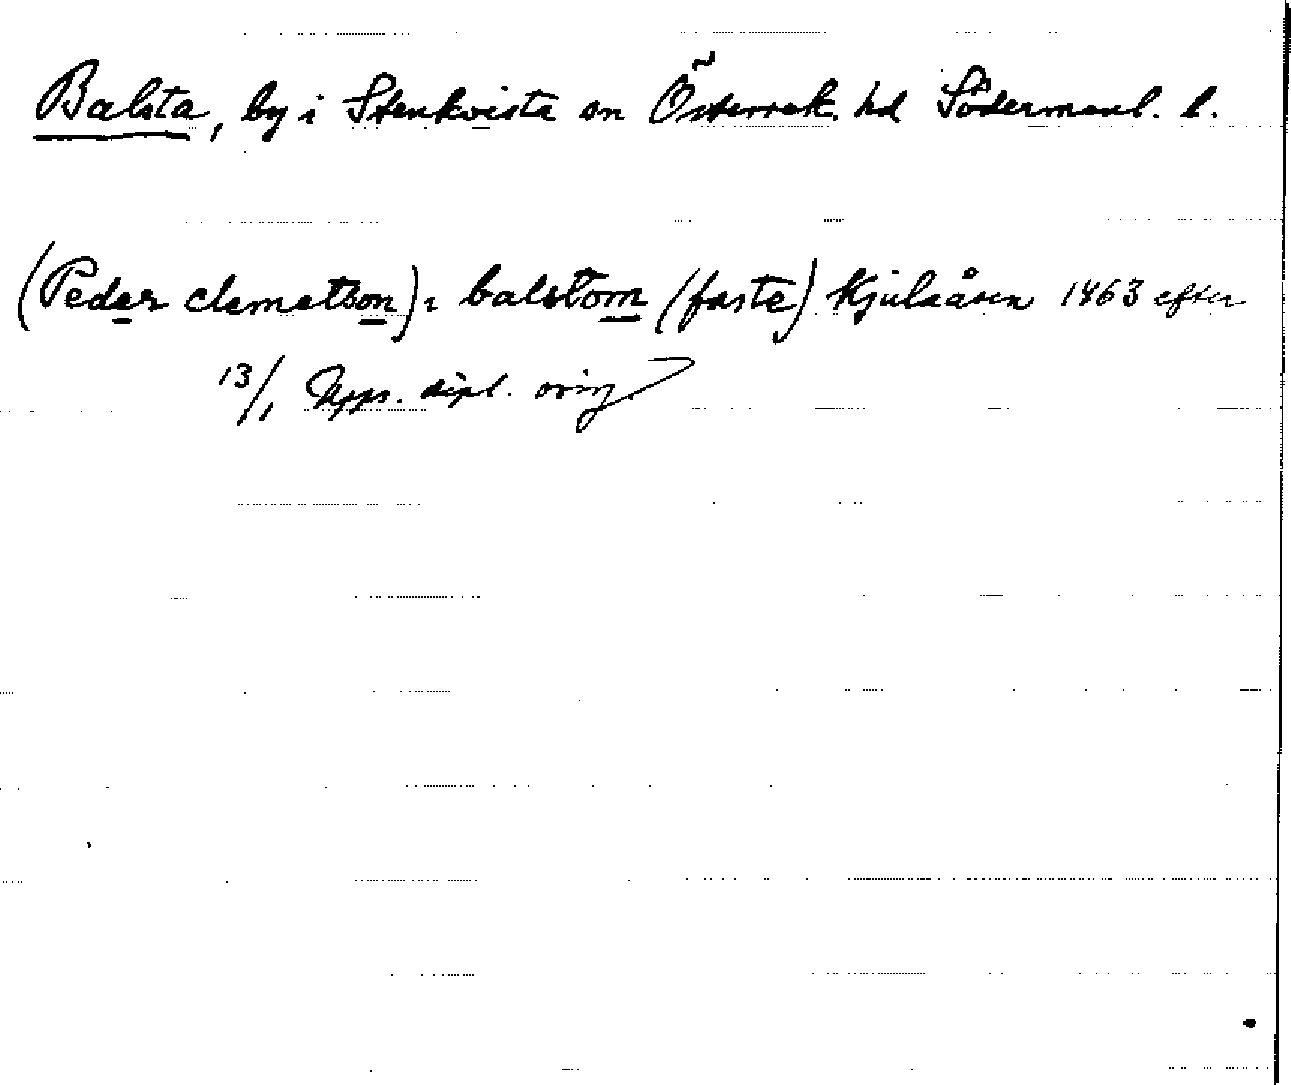 Balsta, by i Stenkvista sn Österrek. hd Södermanl. l.
(Peder clemetson) i balstom (faste) Kjulaåsen 1463 efter
13/1 Upps. dipl. orig